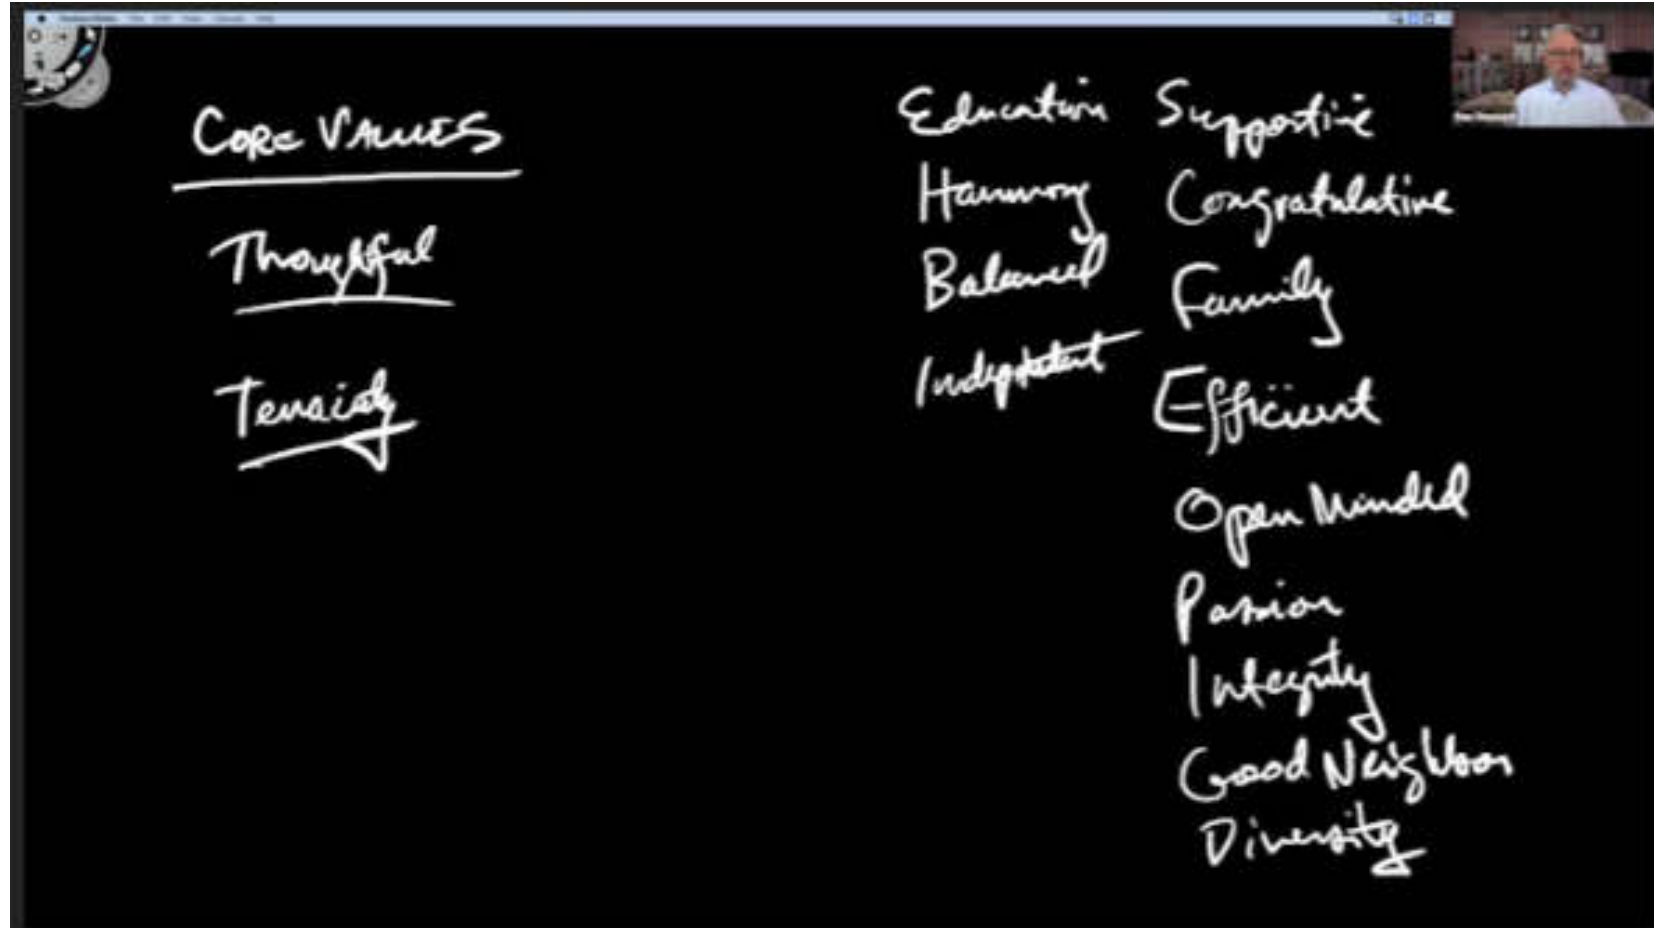 CORE VALUES
Thoughtful
Tenacity
Education
Harmony
Balanced
Independent
Supportive
Congratulative
Family
Efficient
Open Minded
Passion
Integrity
Good Neighbor
Diversity